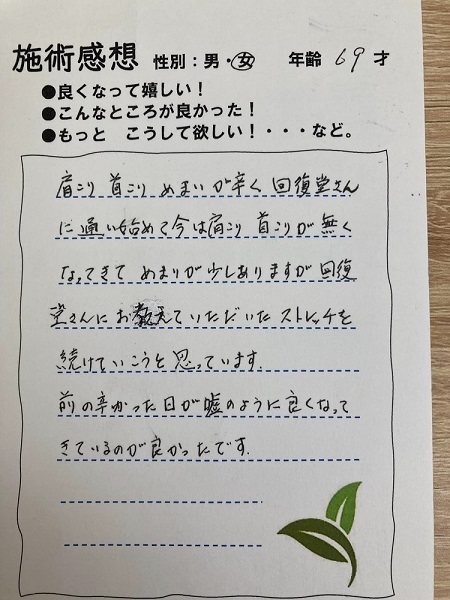 施術感想 性別：男・女 年齢 69 才
●良くなって嬉しい！
●こんなところが良かった！
●もっと こうして欲しい！・・・など。
肩こり 首こり めまいが辛く 回復堂さん
に通い始めて今は肩こり 首こりが無く
なってきて めまいが少しありますが 回復
堂さんにお教えていただいたストレッチを
続けていこうと思っています.
前の辛かった日が嘘のように良くなって
きているのが良かったです.